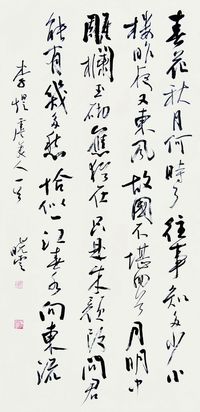 春花秋月何時了往事知多少小
樓昨夜又東風故國不堪回首月明中
雕欄玉砌應猶在只是朱顏改問君
能有幾多愁恰似一江春水向東流
李煜虞美人一首